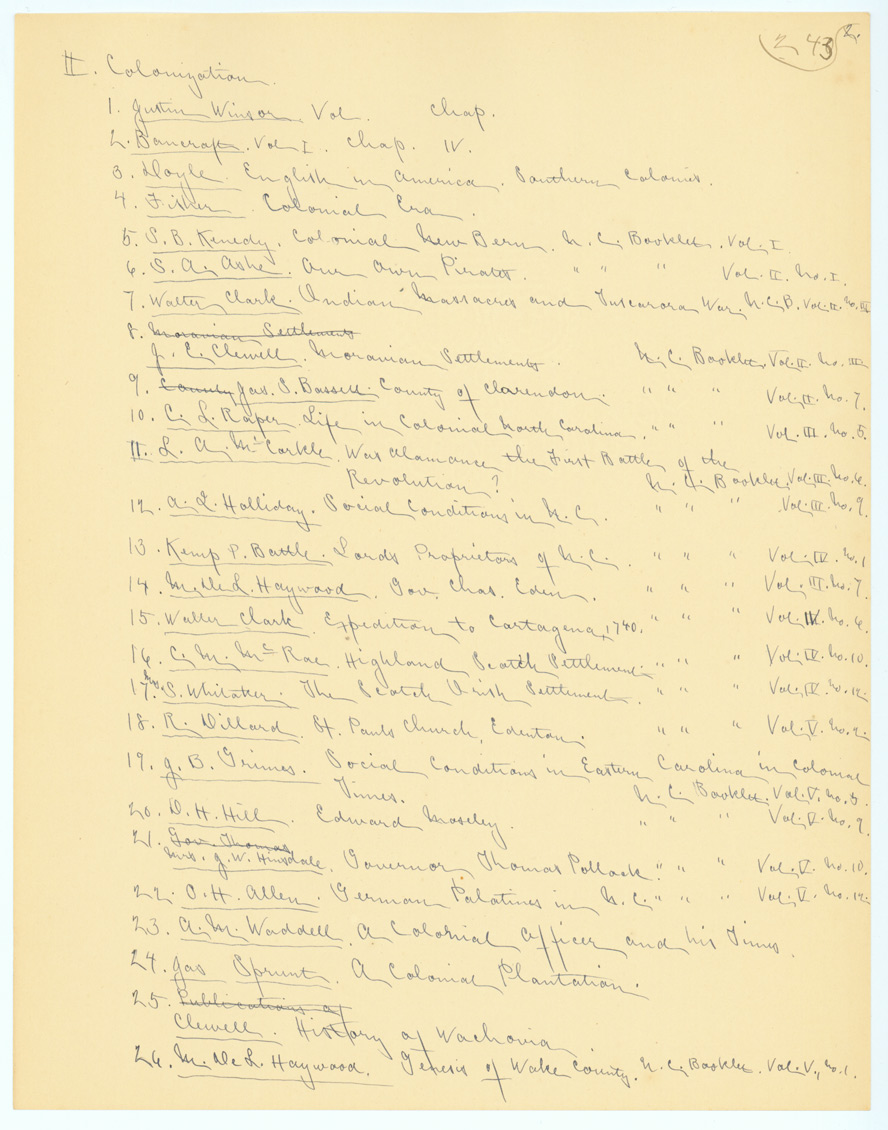 2 43 2.
II. Colonization.
1. Justin Winsor. Vol. Chap.
2. Bancroft. Vol I. Chap. IV.
3. Doyle. English in America. Southern Colonies.
4. Fisher. Colonial Era.
5. S. B. Kenedy. Colonial New Bern. N. C. Booklet. Vol. I
6. S. A. Ashe. Our Own Pirates. " " " Vol. II. No. I.
7. Walter Clark. Indian Massacres and Tuscarora War. N. C. B. Vol. II. No. III
8. Moravian Settlements
J. C. Clewell. Moravian Settlements. N. C. Booklet. Vol. II. No. III.
9. County Jas. S. Bassett. County of Clarendon. " " " Vol. II. No. 7.
10. C. L. Raper. Life in Colonial North Carolina. " " " Vol. III. No. 5.
11. L. A. McCorkle. Was Alamance the First Battle of the
Revolution? N. C. Booklet. Vol. III. No. 6.
12. A. Q. Holliday. Social Conditions in N. C. " " " Vol. III. No. 9.
13. Kemp P. Battle. Lords Proprietors of N. C. " " " Vol. IV. No. 1
14. M. De L. Haywood. Gov. Chas. Eden. " " " Vol. III. No. 7.
15. Walter Clark. Expedition to Cartagena, 1740. " " " Vol. IV. No. 6.
16. C. M. McRae. Highland Scotch Settlement. " " " Vol. IV. No. 10.
17. Mrs. S. Whitaker. The Scotch Irish Settlement. " " " Vol. IV. No. 12.
18. R. Dillard. St. Pauls Church, Edenton. " " " Vol. V. No. 2.
19. J. B. Grimes. Social Conditions in Eastern Carolina in Colonial
Times. N. C. Booklet. Vol. V. No. 3.
20. D. H. Hill. Edward Moseley. " " " Vol. V. No. 9.
21. Gov. Thomas
Mrs. J. W. Hinsdale. Governor Thomas Pollock. " " " Vol. V. No. 10.
22. O. H. Allen. German Palatines in N. C. " " " Vol. V. No. 12.
23. A. M. Waddell. A Colonial Officer and his Times.
24. Jas Sprunt. A Colonial Plantation.
25. Publications of
Clewell. History of Wachovia
26. M. De L. Haywood. Genesis of Wake County. N. C. Booklet. Vol. V., No. 1.